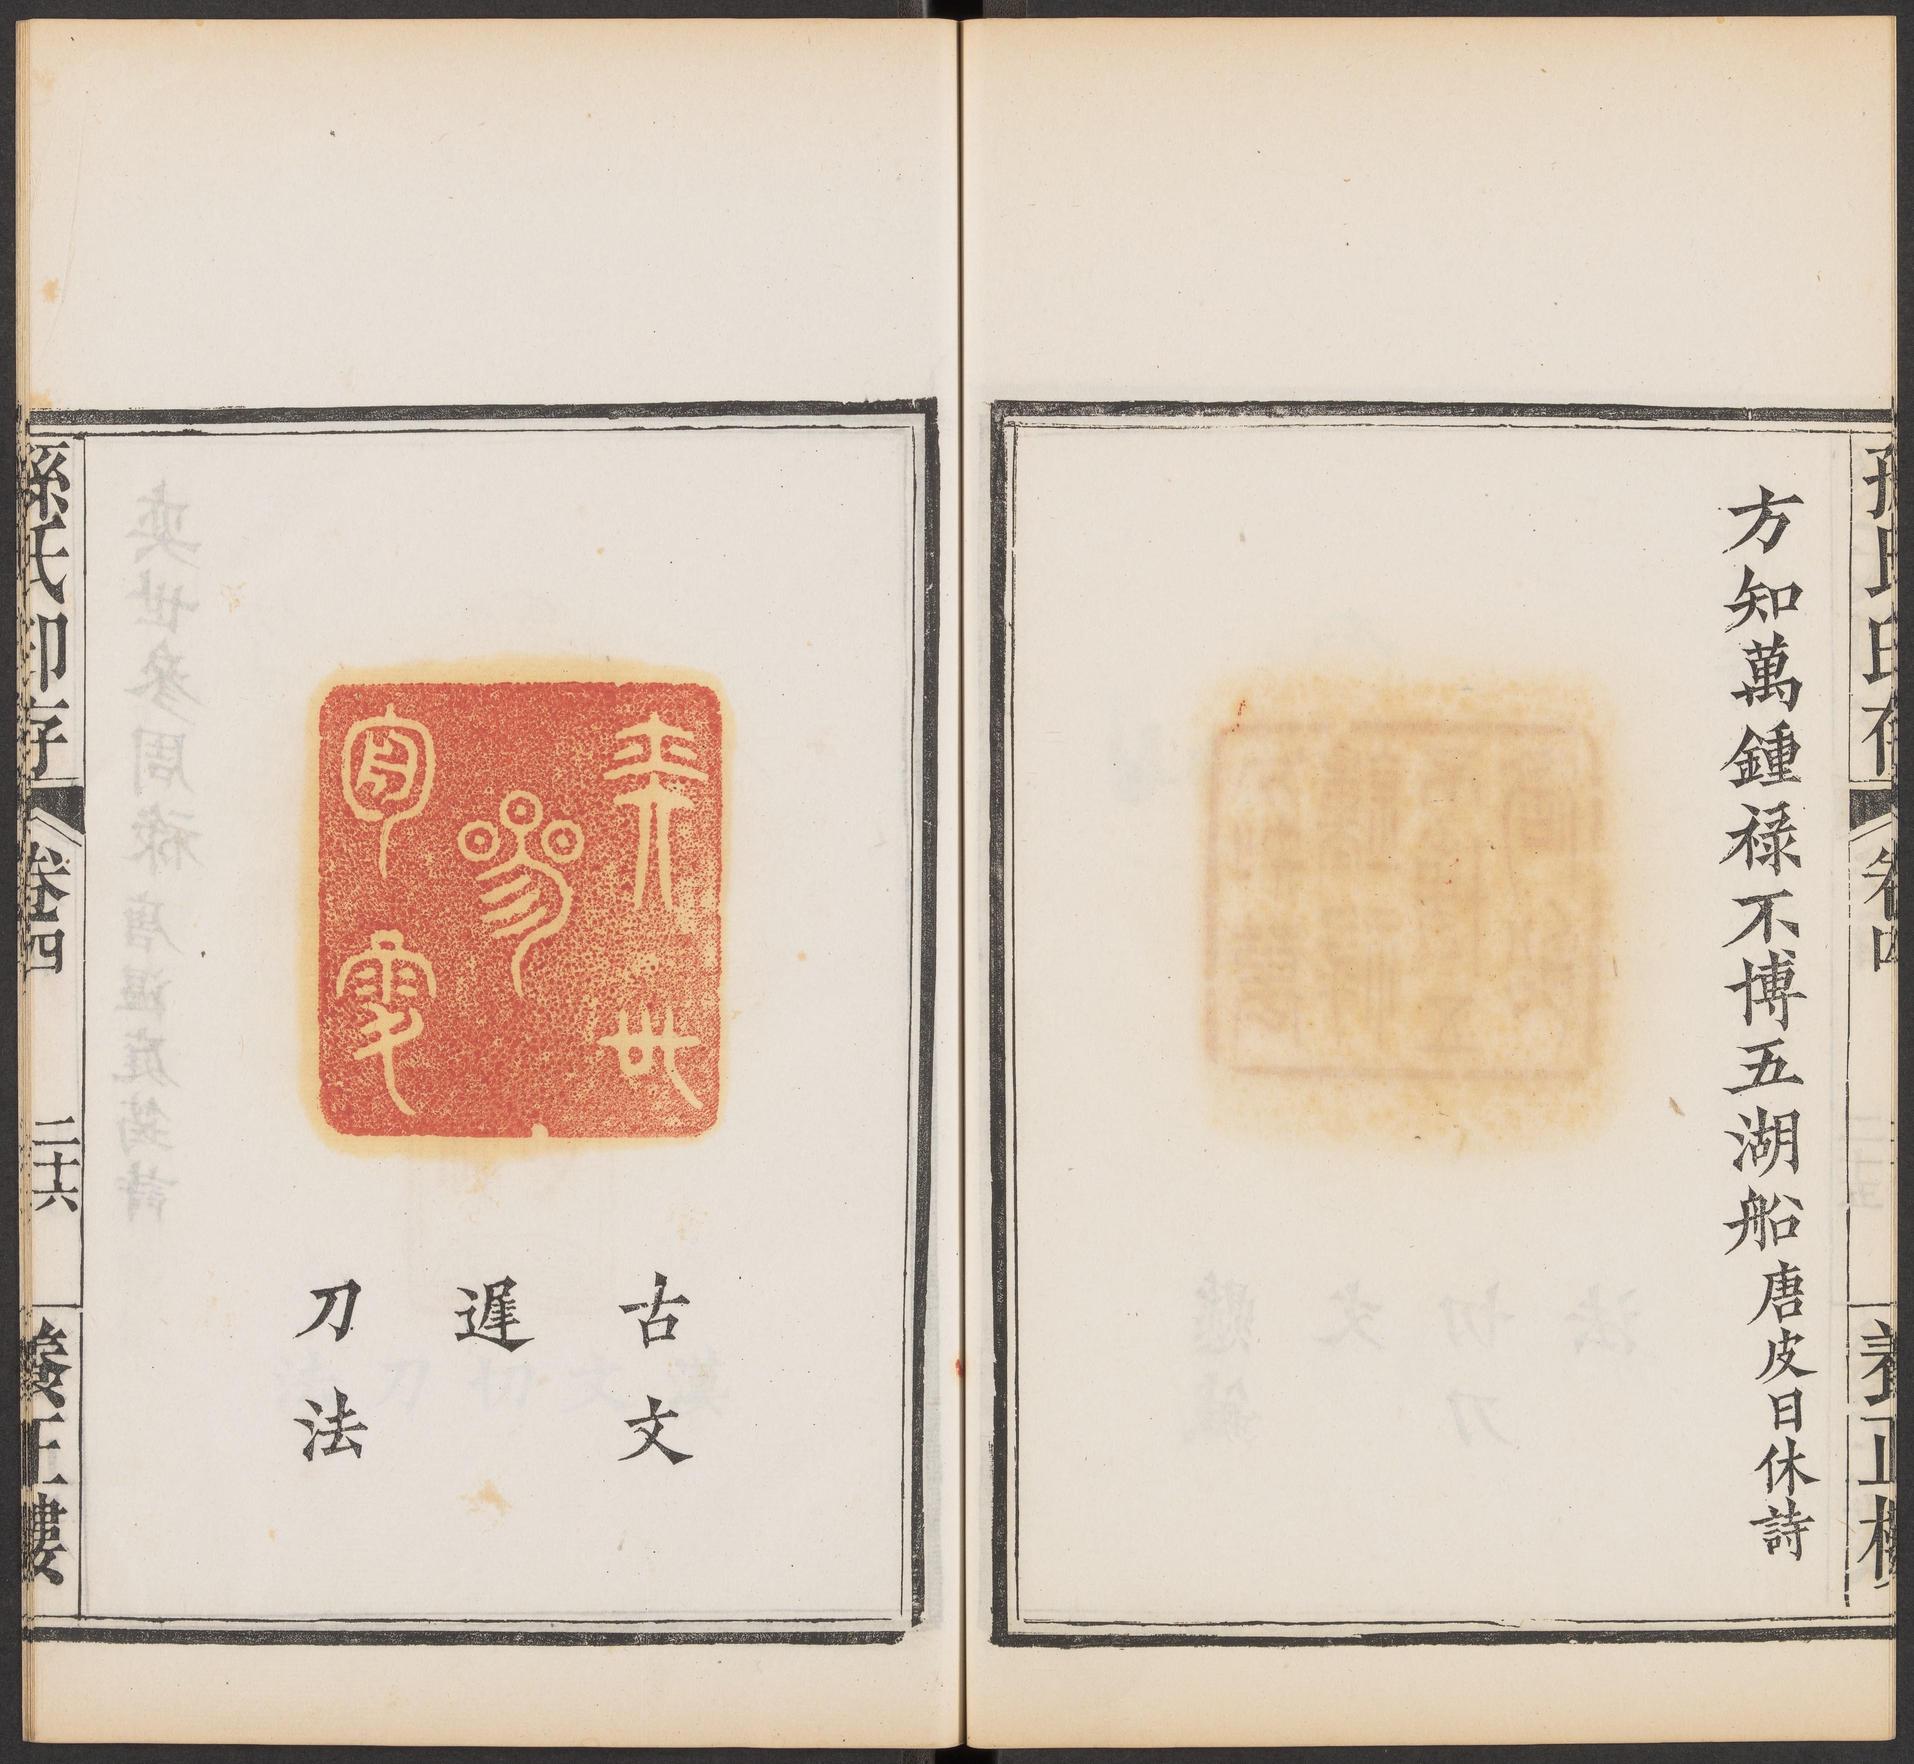 孫氏印存 卷四 養正樓
方知萬鍾禄不博五湖船 唐皮日休詩
奕世
參
周禄
古文
遲
刀法
孫氏印存 卷四 二十六 養正樓